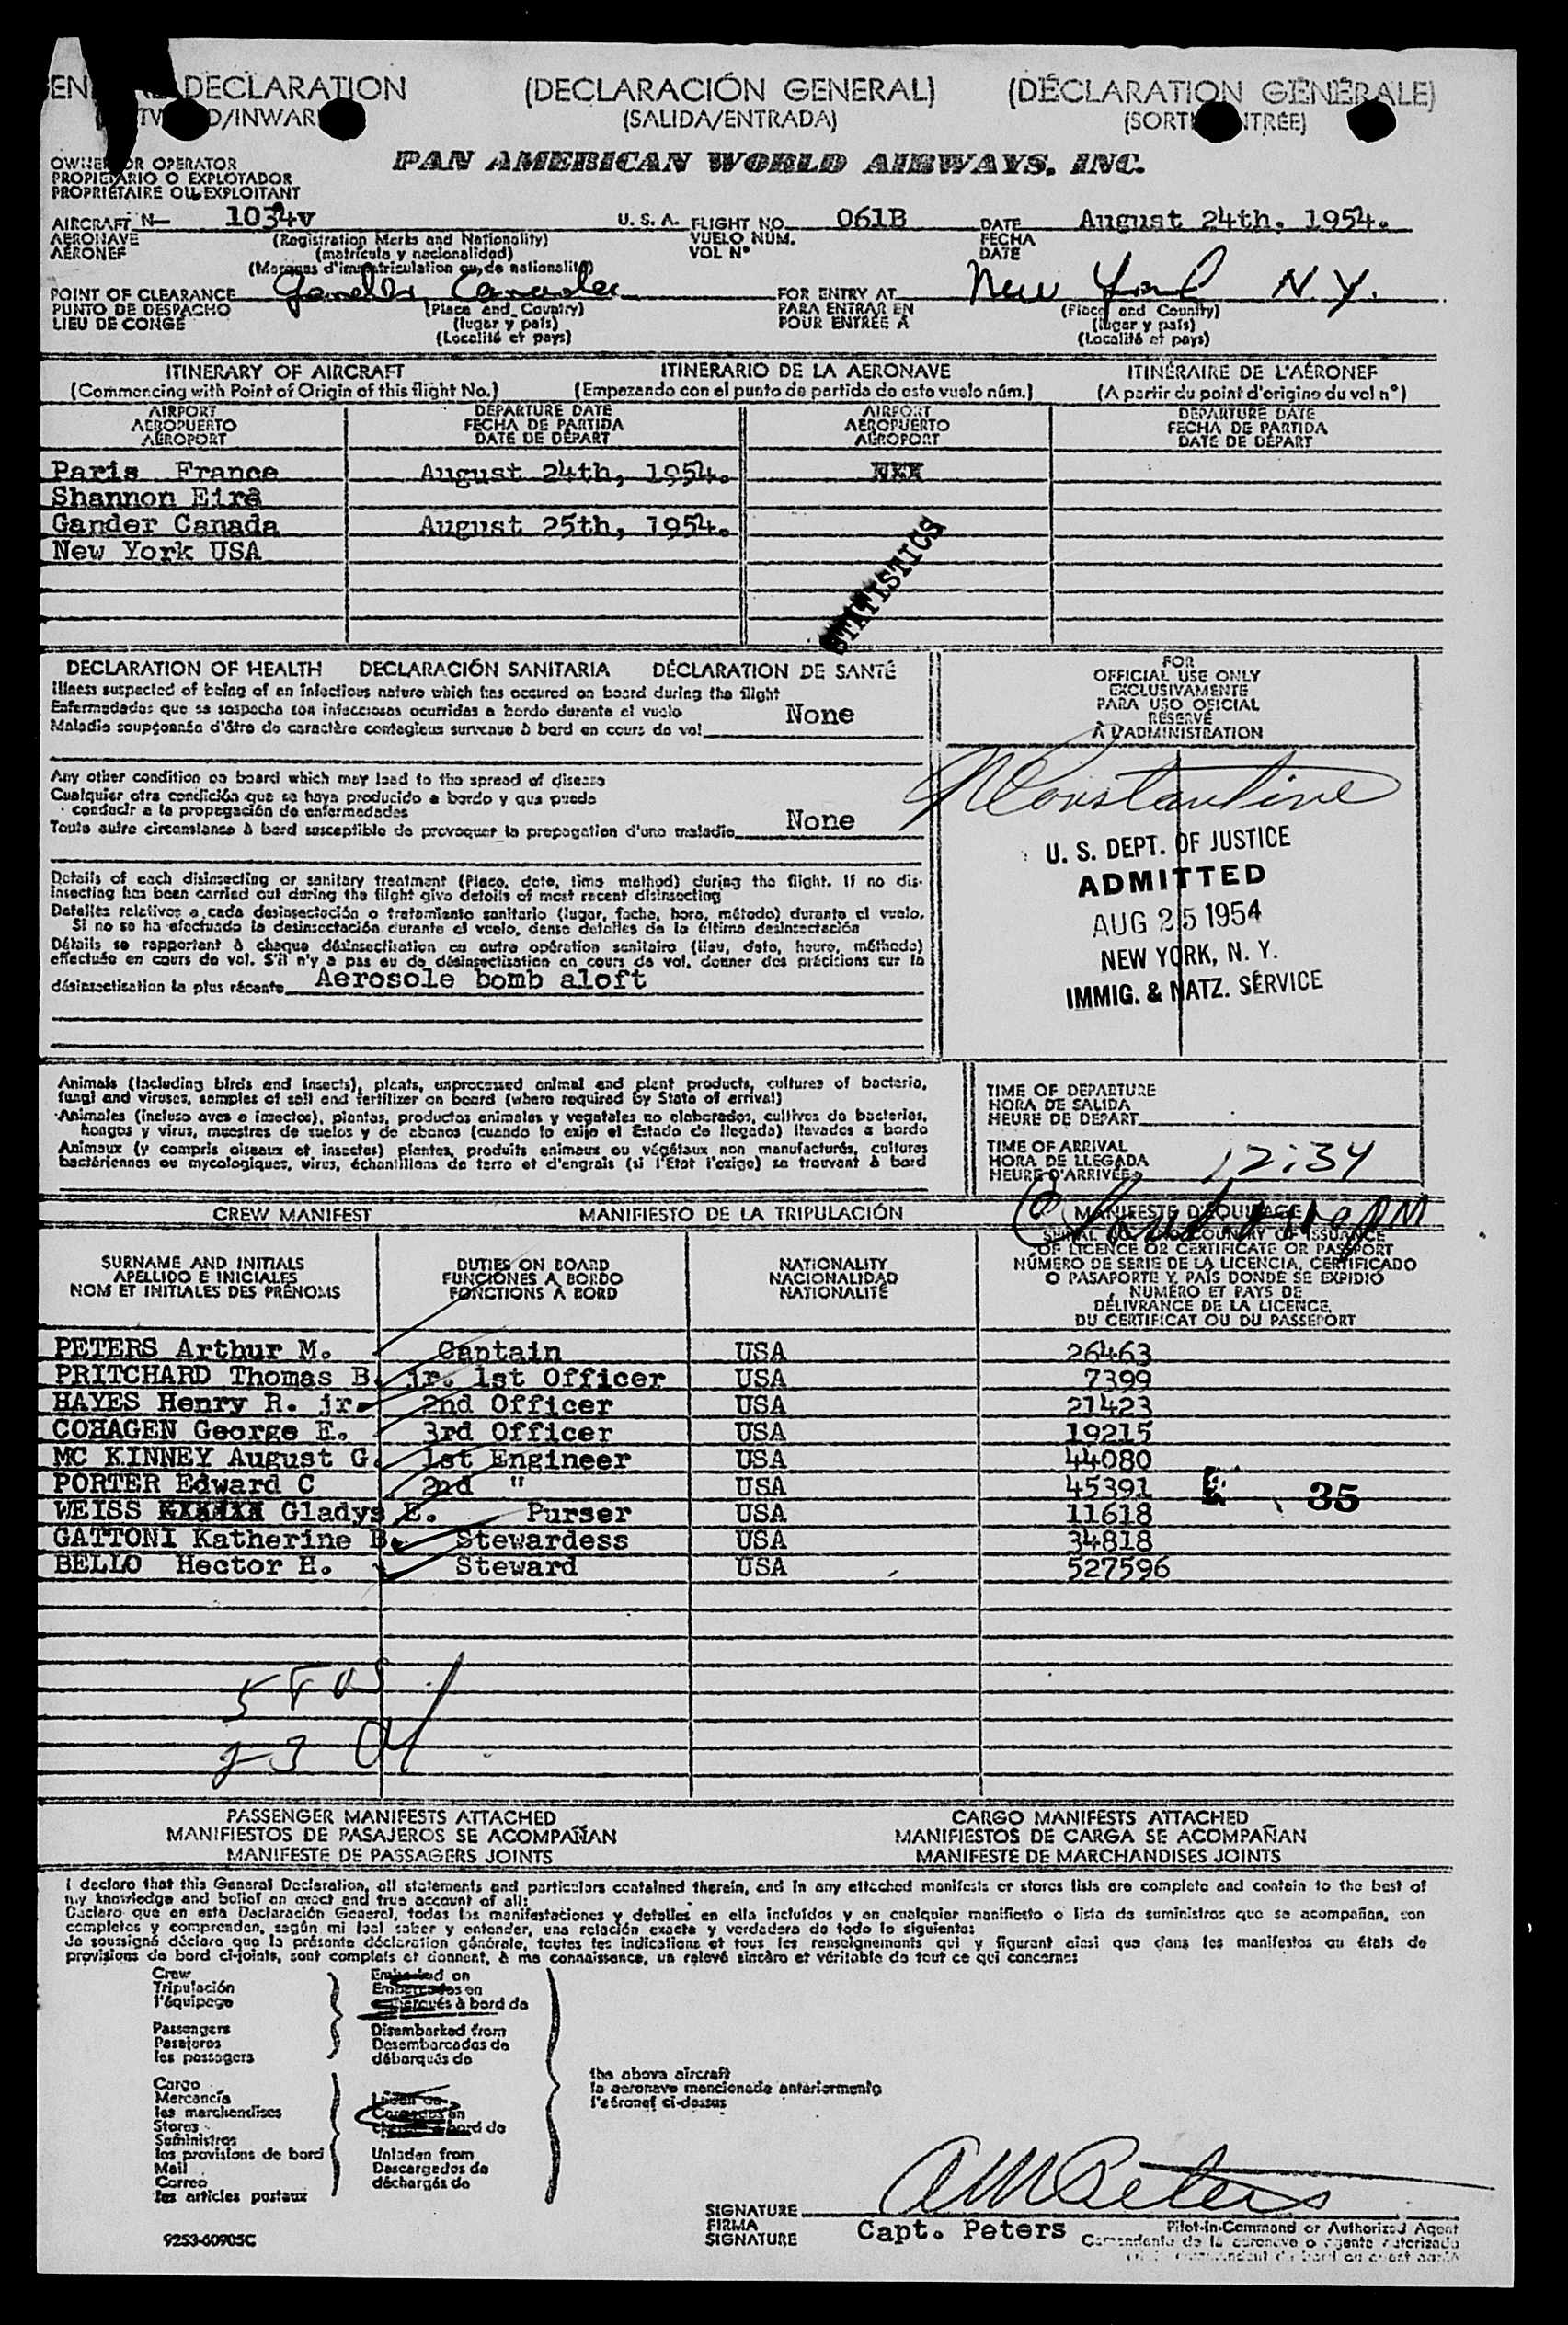 DECLARATION (DECLARACIÓN GENERAL) (DÉCLARATION GÉNÉRALE)
(SALIDA/ENTRADA)
OWNER OR OPERATOR
PROPIETARIO O EXPLOTADOR
PROPRIÉTAIRE OU EXPLOITANT
PAN AMERICAN WORLD AIRWAYS, INC.
AIRCRAFT N— 1034v U. S. A. FLIGHT NO. 061B DATE August 24th, 1954.
AERONAVE (Registration Marks and Nationality) VUELO NÚM. FECHA
AÉRONEF (matrícula y nacionalidad) VOL N° DATE
(Marques d'immatriculation ou de nationalité)
POINT OF CLEARANCE Gander Canada FOR ENTRY AT New York N.Y.
PUNTO DE DESPACHO (Place and Country) PARA ENTRAR EN (Place and Country)
LIEU DE CONGÉ (lugar y país) POUR ENTRÉE À (lugar y país)
(Localité et pays) (Localité et pays)
ITINERARY OF AIRCRAFT ITINERARIO DE LA AERONAVE ITINÉRAIRE DE L'AÉRONEF
(Commencing with Point of Origin of this flight No.) (Empezando con el punto de partida de este vuelo núm.) (A partir du point d'origine du vol n°)
AIRPORT DEPARTURE DATE AIRPORT DEPARTURE DATE
AEROPUERTO FECHA DE PARTIDA AEROPUERTO FECHA DE PARTIDA
AÉROPORT DATE DE DÉPART AÉROPORT DATE DE DÉPART
Paris France August 24th, 1954.
Shannon Eire
Gander Canada August 25th, 1954.
New York USA
STATISTICS
DECLARATION OF HEALTH DECLARACIÓN SANITARIA DÉCLARATION DE SANTÉ
Illness suspected of being of an infectious nature which has occured on board during the flight
Enfermedades que se sospecha son infecciosas ocurridas a bordo durante el vuelo
Maladie soupçonnée d'être de caractère contagieux survenue à bord en cours de vol None
Any other condition on board which may lead to the spread of disease
Cualquier otra condición que se haya producido a bordo y que puede
conducir a la propagación de enfermedades
Toute autre circonstance à bord susceptible de provoquer la propagation d'une maladie None
Details of each disinsecting or sanitary treatment (Place, date, time method) during the flight. If no dis-
insecting has been carried out during the flight give details of most recent disinsecting
Detalles relativos a cada desinsectación o tratamiento sanitario (lugar, fecha, hora, método) durante el vuelo.
Si no se ha efectuado la desinsectación durante el vuelo, dense detalles de la última desinsectación
Détails se rapportant à chaque désinsectisation ou autre opération sanitaire (lieu, date, heure, méthode)
effectuée en cours de vol. S'il n'y a pas eu de désinsectisation en cours de vol, donner des précisions sur la
désinsectisation la plus récente Aerosole bomb aloft
FOR
OFFICIAL USE ONLY
EXCLUSIVAMENTE
PARA USO OFICIAL
RÉSERVÉ
À L'ADMINISTRATION
Constantine
U. S. DEPT. OF JUSTICE
ADMITTED
AUG 25 1954
NEW YORK, N. Y.
IMMIG. & NATZ. SERVICE
Animals (including birds and insects), plants, unprocessed animal and plant products, cultures of bacteria,
fungi and viruses, samples of soil and fertilizer on board (where required by State of arrival)
Animales (incluso aves e insectos), plantas, productos animales y vegetales no elaborados, cultivos de bacterias,
hongos y virus, muestras de suelos y de abonos (cuando lo exija el Estado de llegada) llevados a bordo
Animaux (y compris oiseaux et insectes) plantes, produits animaux ou végétaux non manufacturés, cultures
bactériennes ou mycologiques, virus, échantillons de terre et d'engrais (si l'État l'exige) se trouvant à bord
TIME OF DEPARTURE
HORA DE SALIDA
HEURE DE DÉPART
TIME OF ARRIVAL
HORA DE LLEGADA
HEURE D'ARRIVÉE 12:34
PM
CREW MANIFEST MANIFIESTO DE LA TRIPULACIÓN MANIFESTE D'ÉQUIPAGE
SURNAME AND INITIALS DUTIES ON BOARD NATIONALITY SERIAL NO. AND COUNTRY OF ISSUANCE
APELLIDO E INICIALES FUNCIONES A BORDO NACIONALIDAD OF LICENCE OR CERTIFICATE OR PASSPORT
NOM ET INITIALES DES PRÉNOMS FONCTIONS À BORD NATIONALITÉ NÚMERO DE SERIE DE LA LICENCIA, CERTIFICADO
O PASAPORTE Y PAÍS DONDE SE EXPIDIÓ
NUMÉRO ET PAYS DE
DÉLIVRANCE DE LA LICENCE,
DU CERTIFICAT OU DU PASSEPORT
PETERS Arthur M. Captain USA 26463
PRITCHARD Thomas B. jr. 1st Officer USA 7399
HAYES Henry R. jr. 2nd Officer USA 21423
COHAGEN George E. 3rd Officer USA 19215
MC KINNEY August G. 1st Engineer USA 44080
PORTER Edward C 2nd " USA 45391
WEISS Gladys E. Purser USA 11618
GATTONI Katherine B. Stewardess USA 34818
BELLO Hector H. Steward USA 527596
35
PASSENGER MANIFESTS ATTACHED CARGO MANIFESTS ATTACHED
MANIFIESTOS DE PASAJEROS SE ACOMPAÑAN MANIFIESTOS DE CARGA SE ACOMPAÑAN
MANIFESTE DE PASSAGERS JOINTS MANIFESTE DE MARCHANDISES JOINTS
I declare that this General Declaration, all statements and particulars contained therein, and in any attached manifests or stores lists are complete and contain to the best of
my knowledge and belief an exact and true account of all:
Declaro que en esta Declaración General, todas las manifestaciones y detalles en ella incluídos y en cualquier manifiesto o lista de suministros que se acompañan, son
completos y comprenden, según mi leal saber y entender, una relación exacta y verdadera de todo lo siguiente:
Je soussigné déclare que la présente déclaration générale, toutes les indications et tous les renseignements qui y figurent ainsi que dans les manifestes ou états de
provisions de bord ci-joints, sont complets et donnent, à ma connaissance, un relevé sincère et véritable de tout ce qui concerne:
Crew Embarked on
Tripulación Embarcados en
l'équipage embarqués à bord de
Passengers Disembarked from
Pasajeros Desembarcados de
les passagers débarqués de
the above aircraft
la aeronave mencionada anteriormente
l'aéronef ci-dessus
Cargo
Mercancía Laden on
les marchandises Cargados en
Stores bord de
Suministros
les provisions de bord Unladen from
Mail Descargados de
Correo déchargés de
les articles postaux
SIGNATURE AM Peters
FIRMA Capt. Peters Pilot-in-Command or Authorized Agent
SIGNATURE Comandante de la aeronave o agente autorizado
9253-60905C